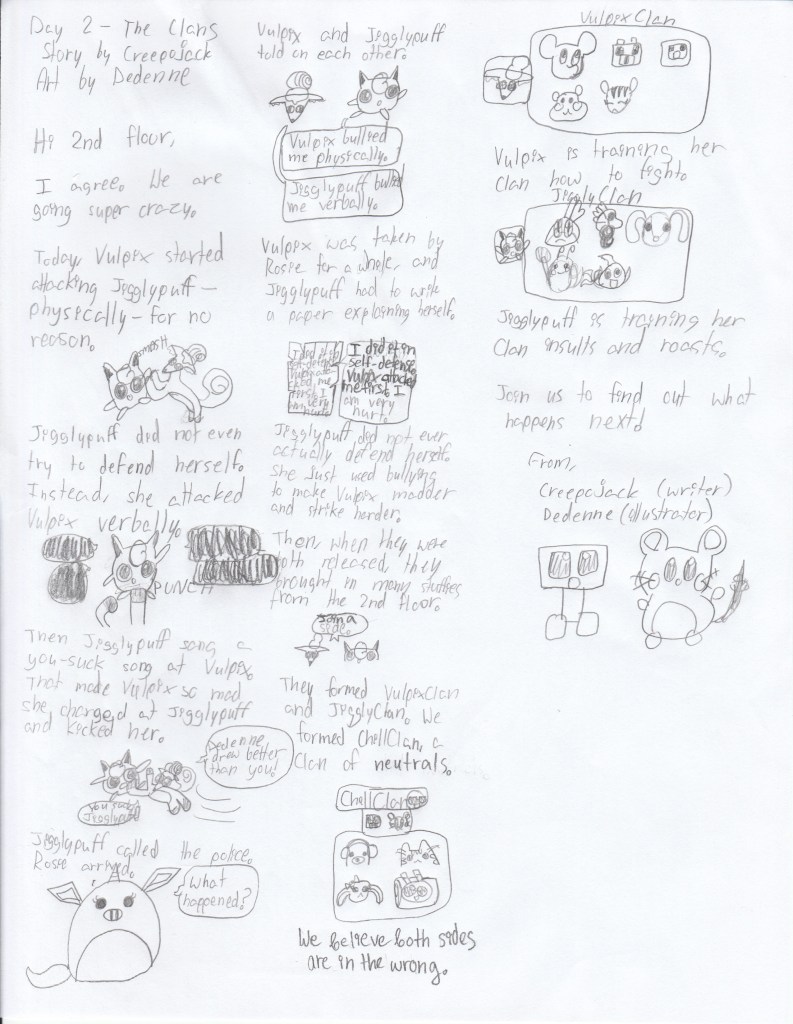 Day 2 - The Clans
Story by Creepojack
Art by Dedenne
Hi 2nd floor,
I agree. We are
going super crazy.
Today, Vulpix started
attacking Jigglypuff -
physically - for no
reason.
SMASH
Jigglypuff did not even
try to defend herself.
Instead, she attacked
Vulpix verbally.
PUNCH
Then Jigglypuff song a
you-suck song at Vulpix.
That made Vulpix so mad
she charged at Jigglypuff
and kicked her.
Dedenne
drew better
than you!
You suck
Jigglypuff
Jigglypuff called the police.
Rosie arrived.
What
happened?
Vulpix and Jigglypuff
told on each other.
Vulpix bullied
me physically.
Jigglypuff bullied
me verbally.
Vulpix was taken by
Rosie for a while, and
Jigglypuff had to write
a paper explaining herself.
I did it in
self-defense.
Vulpix attacked
me first. I
am very
hurt.
Jigglypuff did not ever
actually defend herself.
She just used bullying
to make Vulpix madder
and strike harder.
Then, when they were
both released, they
brought in many stuffies
from the 2nd floor.
Join a
side.
They formed VulpixClan
and JigglyClan. We
formed ChellClan, a
Clan of neutrals.
ChellClan
We believe both sides
are in the wrong.
VulpixClan
Vulpix is training her
Clan how to fight.
JigglyClan
Jigglypuff is training her
Clan insults and roasts.
Join us to find out what
happens next!
From,
Creepojack (writer)
Dedenne (illustrator)